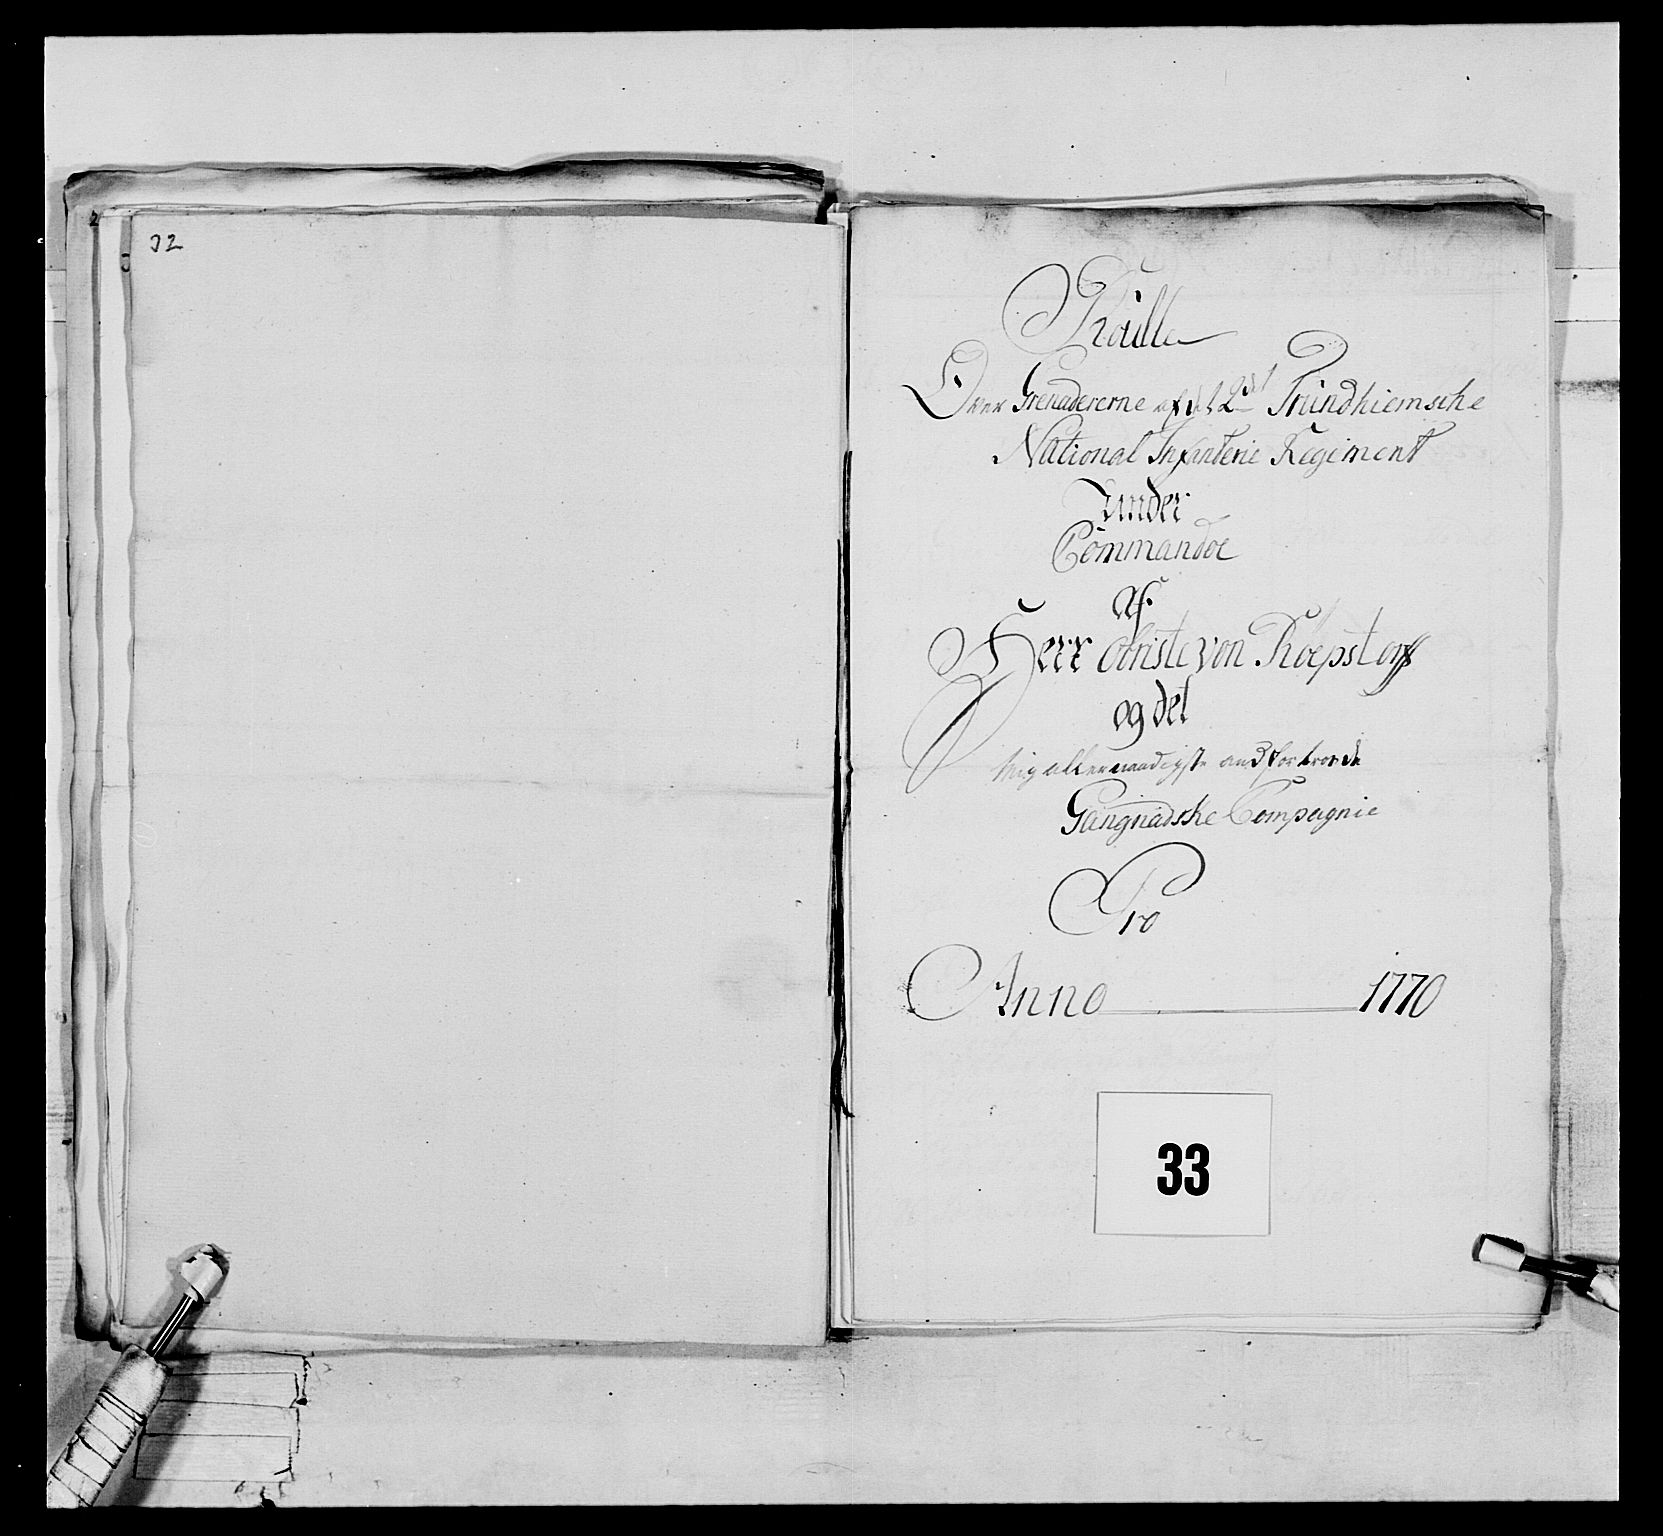 32
Raulle
Over Grenadererne af det 2det Trundhiemsche
National Infanterie Regiment
under
Commandoe
af
Herr Obriste von Röepstorff
og det
mig allernaadigste andfortroede
Gangnadske Compagnie
Pro
Anno 1770
33